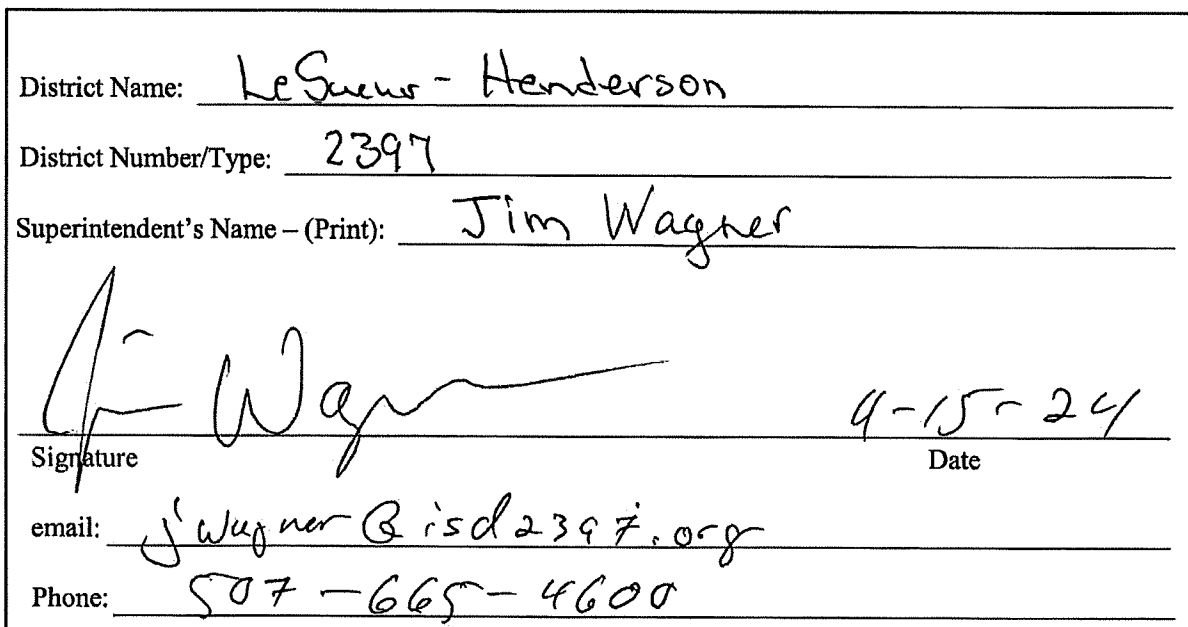 District Name: LeSueur - Henderson
District Number/Type: 2397
Superintendent's Name – (Print): Jim Wagner
Jim Wagner 4-15-24
Signature Date
email: jwagner@isd2397.org
Phone: 507-665-4600